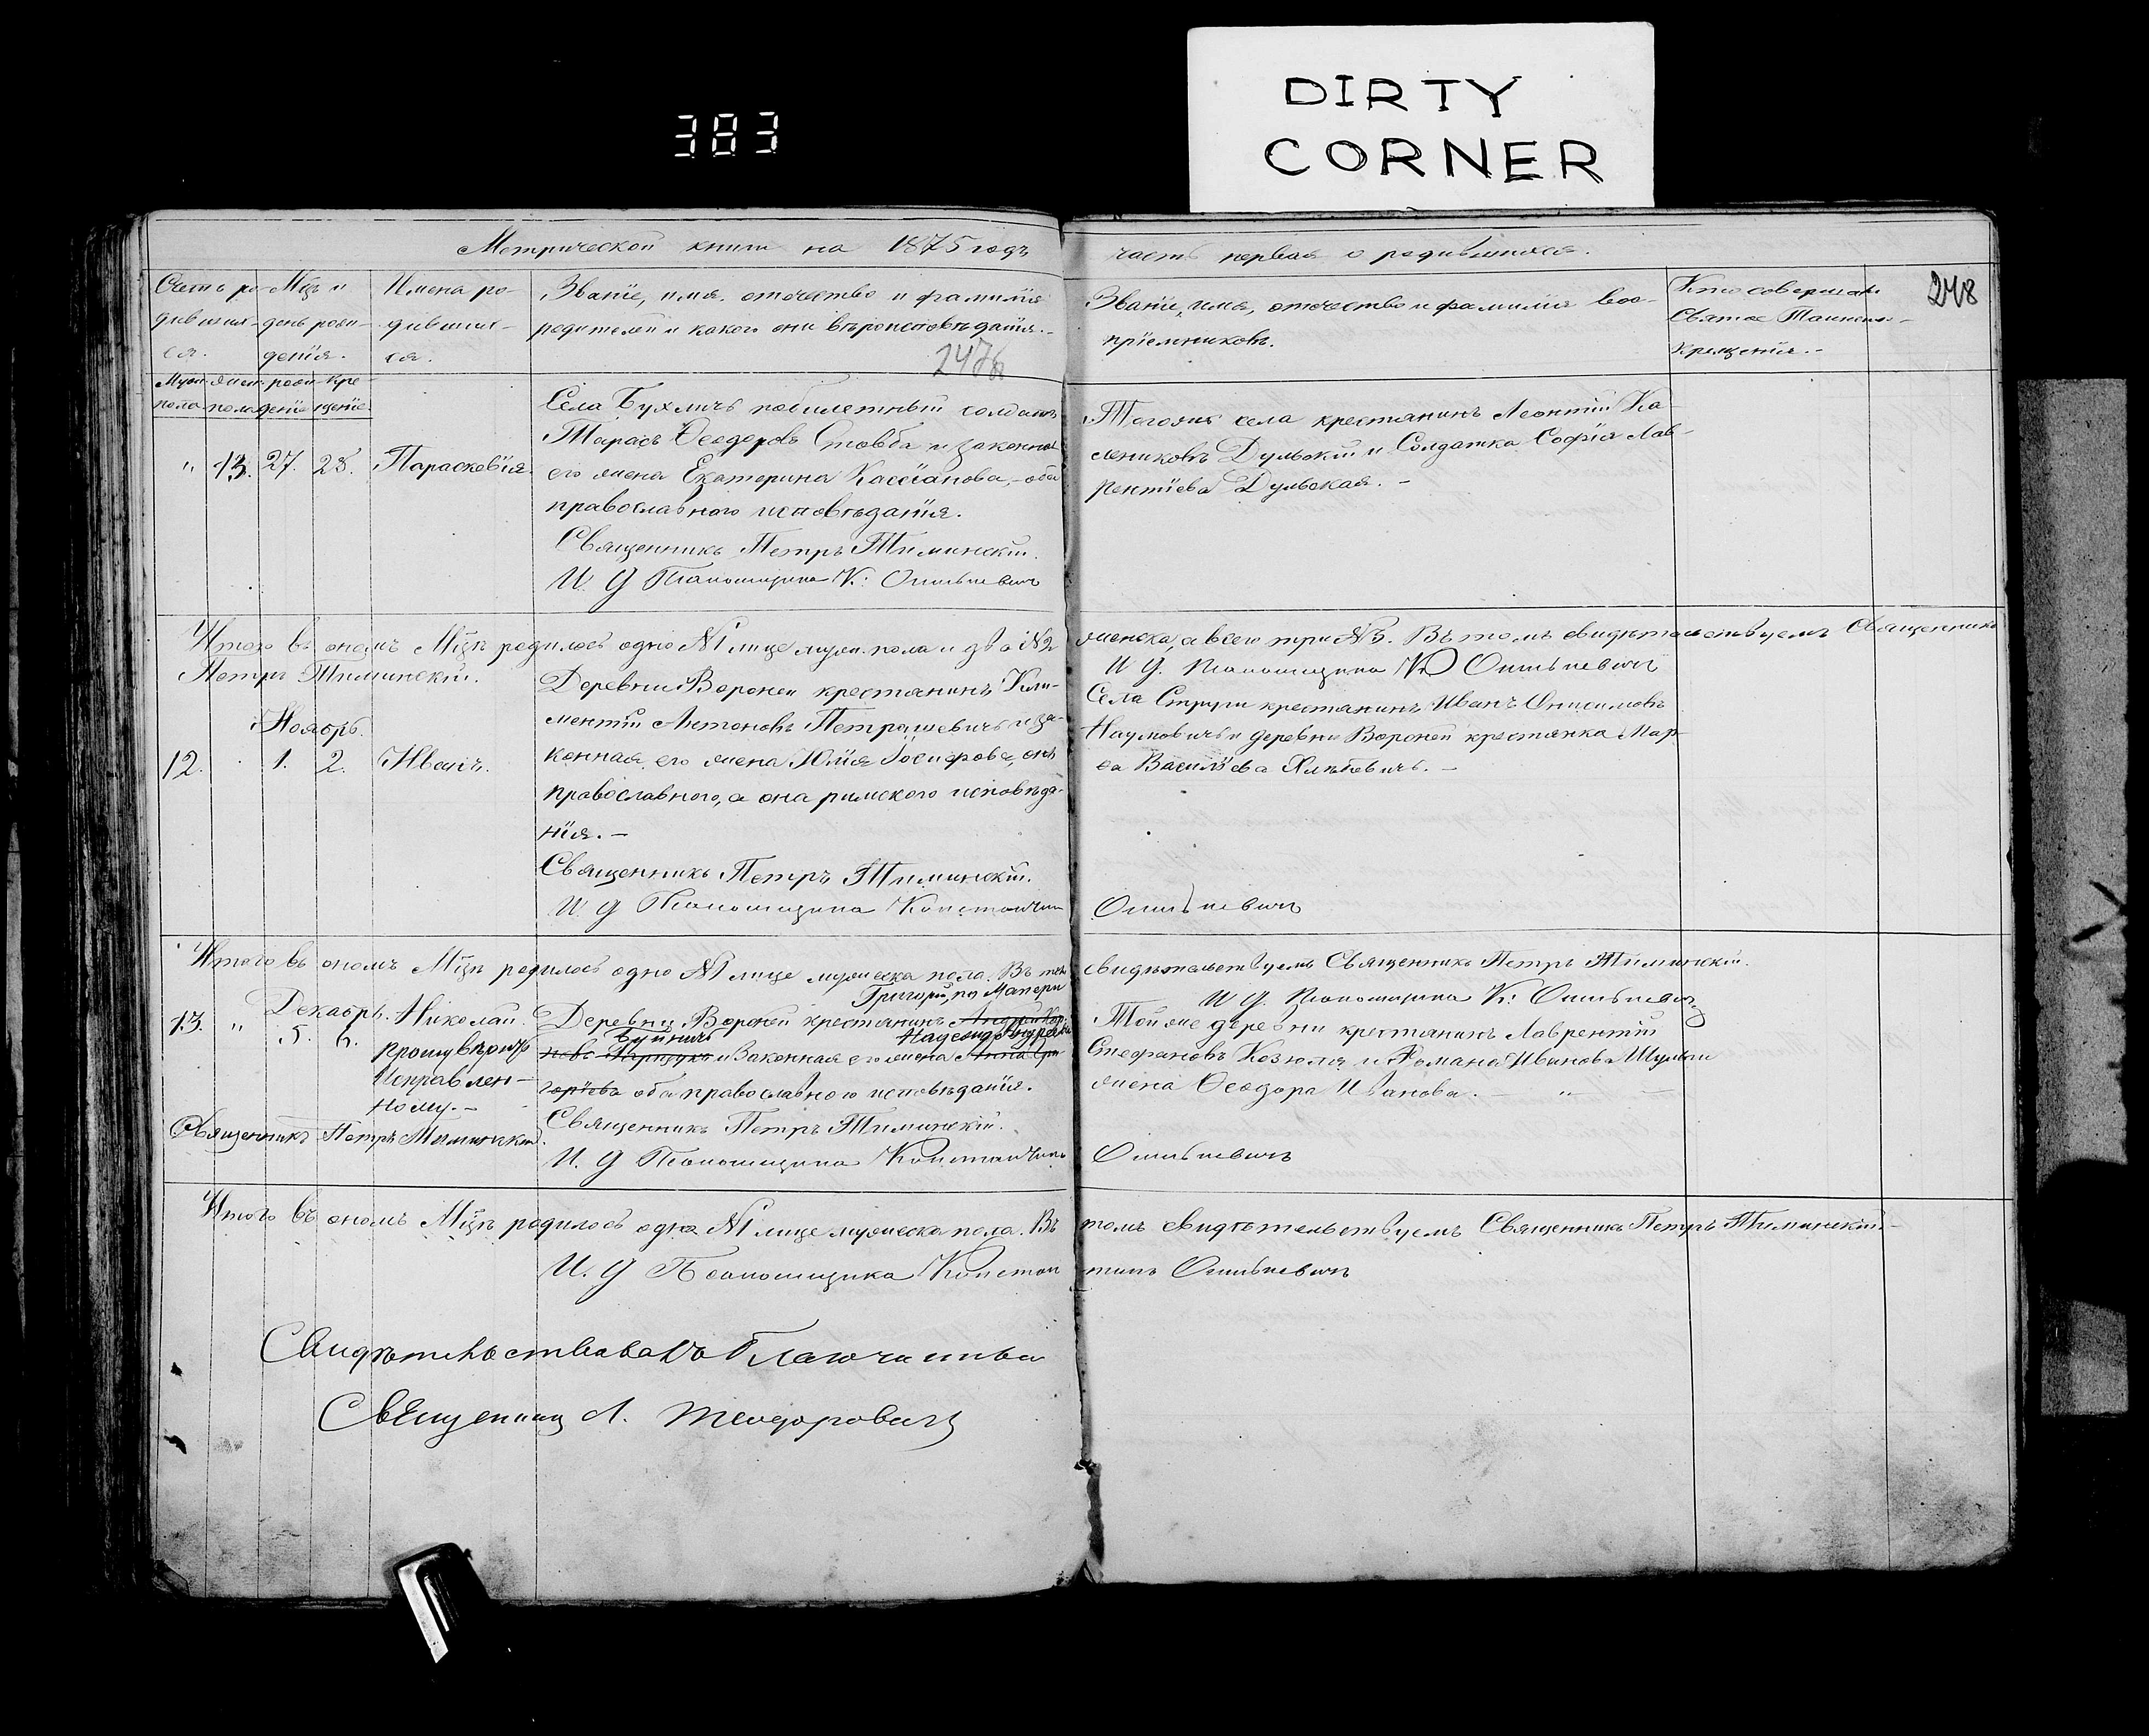 DIRTY
CORNER
383
Метрической книги на 1875 годъ
часть первая о родившихся.
248
Счетъ ро-
дивших-
ся.
Мцъ и
день рож-
денія.
Имена ро-
дивших-
ся.
Званіе, имя, отчество и фамилія
родителей и какого они вѣроисповѣданія.-
Званіе, имя, отчество и фамилія вос-
пріемниковъ.
Кто совершалъ
Святое Таинство
крещенія.-
Муж. жен. рож- кре-
пола пола денія щенія
" 13. 27. 28. Параскевія.
Села Бухличъ побилетный солдатъ
Тарасъ Ѳеодоровъ Стовба и законная
его жена Екатерина Кассіанова,- оба
православного исповѣданія.
Священникъ Петръ Тиминскій.
И. Д Псаломщика К:
Тогожъ села крестьянинъ Леонтій Ка-
лениковъ Дульскій и Солдатка Софія Лав-
рентіева Дульская. -
Итого въ ономъ Мцѣ родилось одно №1 лице муж. пола и два №2
женска, а всего три №3. Въ томъ свидѣтельствуемъ Священникъ
Петръ Тиминскій.
И Д. Псаломщика К
Ноябрь.
12. 1. 2. Иванъ.
Деревни Вороней крестьянинъ Кли-
ментій Антоновъ Петрашевичъ и за-
конная его жена Юлія Іосифова, онъ
православного, а она римского исповѣда-
нія. -
Священникъ Петръ Тиминскій.
И. Д Псаломщика Константинъ
Села Струги крестьянинъ Иванъ Онисимовъ
Наумовичъ и деревни Вороней крестьянка Мар-
ѳа Василіева
Итого въ ономъ Мцѣ родилось одно №1 лице мужеска пола. Въ томъ
свидѣтельствуемъ Священникъ Петръ Тиминскій.
И Д. Псаломщика К:
Декабрь.
13. " 5. 6. Николай.
прошу вѣрить
Исправлен-
ному. -
Священникъ Петръ Тиминскій.
Григорій, по Матери
Деревни Вороней крестьянинъ Андрей
Надежда Андреева
и Законная его жена Анна Гри-
горіева оба православного исповѣданія.
Священникъ Петръ Тиминскій.
И. Д Псаломщика Константинъ
Той же деревни крестьянинъ Лаврентій
Стефановъ Козюля и Романа Иванова
жена Ѳеодора Иванова. - " -
Итого въ ономъ Мцѣ родилось одно №1 лице мужеска пола. Въ
томъ свидѣтельствуемъ Священникъ Петръ Тиминскій-
И. Д Псаломщика Констан
тинъ
Свидѣтельствовалъ Благочинный
Священникъ Л. Теодоровичъ